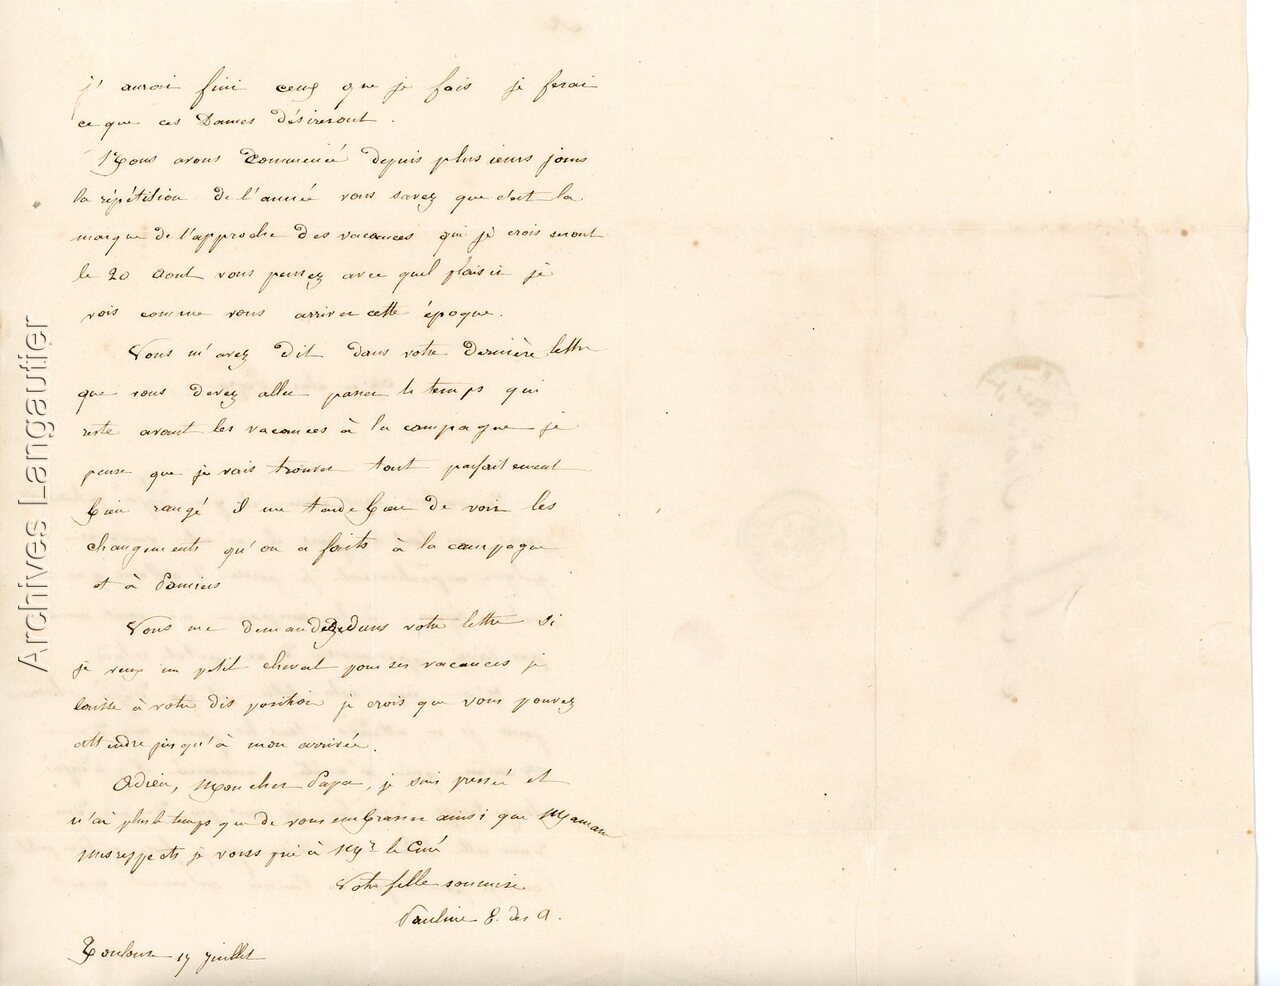 j'aurai fini ceux que je fais je ferai
ce que ces Dames désireront.
Nous avons commencé depuis plusieurs jours
la répétition de l'année vous savez que c'est la
marque de l'approche des vacances qui je crois seront
le 20 Aout vous pensez avec quel plaisir je
vois comme vous arriver cette époque.
Vous m'avez dit dans votre dernière lettre
que vous devez aller passer le temps qui
reste avant les vacances à la campagne je
pense que je vais trouver tout parfaitement
bien rangé il me tarde bien de voir les
changements qu'on a faits à la campagne
et à Pamiers
Vous me demandez dans votre lettre si
je veux un petit cheval pour ses vacances je
laisse à votre disposition je crois que vous pouvez
attendre jusqu'à mon arrivée.
Adieu, Mon cher Papa, je suis pressée et
n'ai plus le temps que de vous embrasser ainsi que Maman
Mes respects je vous prie à Mr le Curé
Votre fille soumise
Pauline E. des A.
Toulouse 17 juillet
Archives Langautier